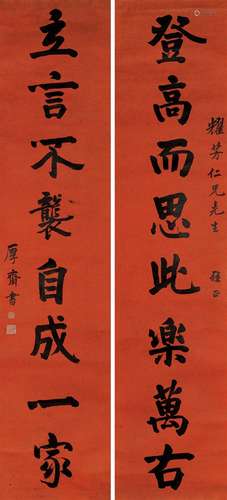 登高而思此樂萬右
耀芳仁兄先生 雅正
立言不襲自成一家
厚齋書